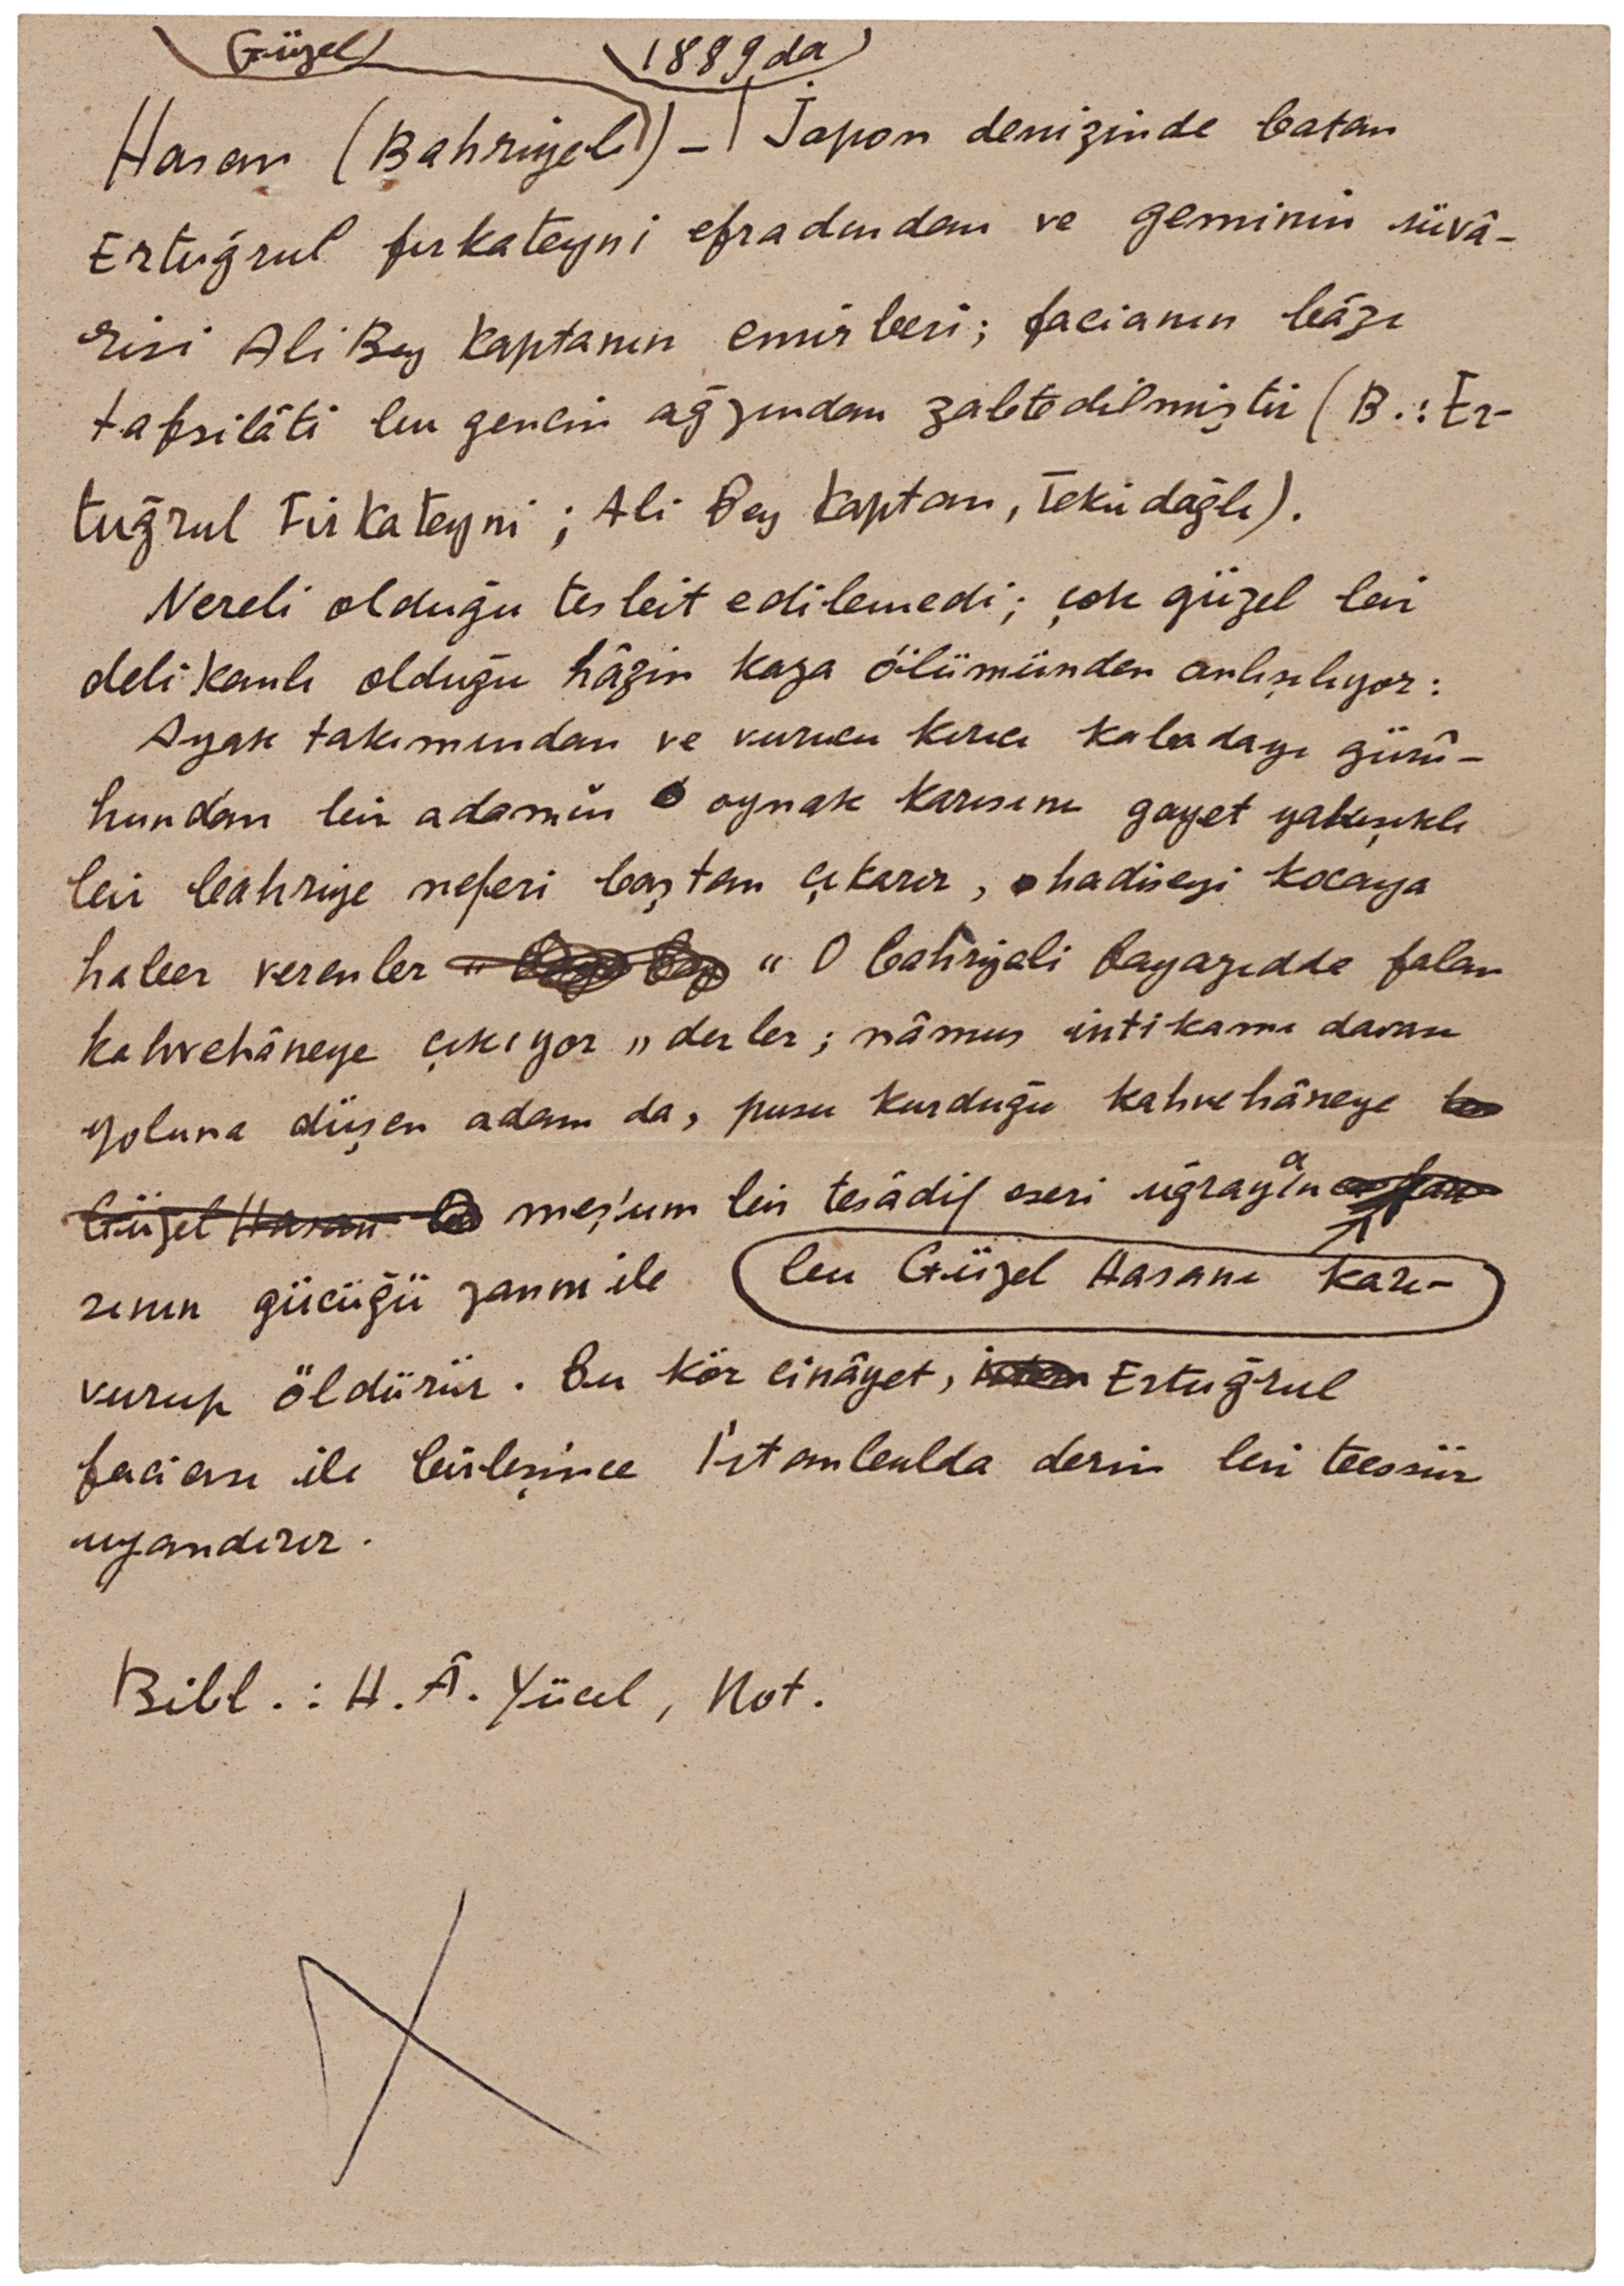 Güzel 1889 da
Hasan (Bahriyeli) — Japon denizinde batan
Ertuğrul fırkateyni efradından ve geminin süvâ-
risi Ali Bey Kaptanın emirberi; facianın bâzı
tafsilâti bu gencin ağzından zabtedilmiştir (B.: Er-
tuğrul Firkateyni; Ali Bey Kaptan, Tekirdağlı).
Nereli olduğu tesbit edilemedi; çok güzel bir
delikanlı olduğu hâzin kaza ölümünden anlaşılıyor:
Ayak takımından ve vurucu kırıcı kabadayı gürû-
hundan bir adamın oynak karısını gayet yakışıklı
bir bahriye neferi baştan çıkarır, hadiseyi kocaya
haber verenler " O bahriyeli Bayazıdda falan
kahvehâneye çıkıyor „ derler; nâmus intikamı davası
yoluna düşen adam da, pusu kurduğu kahvehâneye
meş'um bir tesâdüf eseri uğrayan
bu Güzel Hasanı karı-
sının gücüğü zannı ile
vurup öldürür. Bu kör cinâyet, Ertuğrul
faciası ile birleşince İstanbulda derin bir teessür
uyandırır.
Bibl.: H. Â. Yücel, Not.